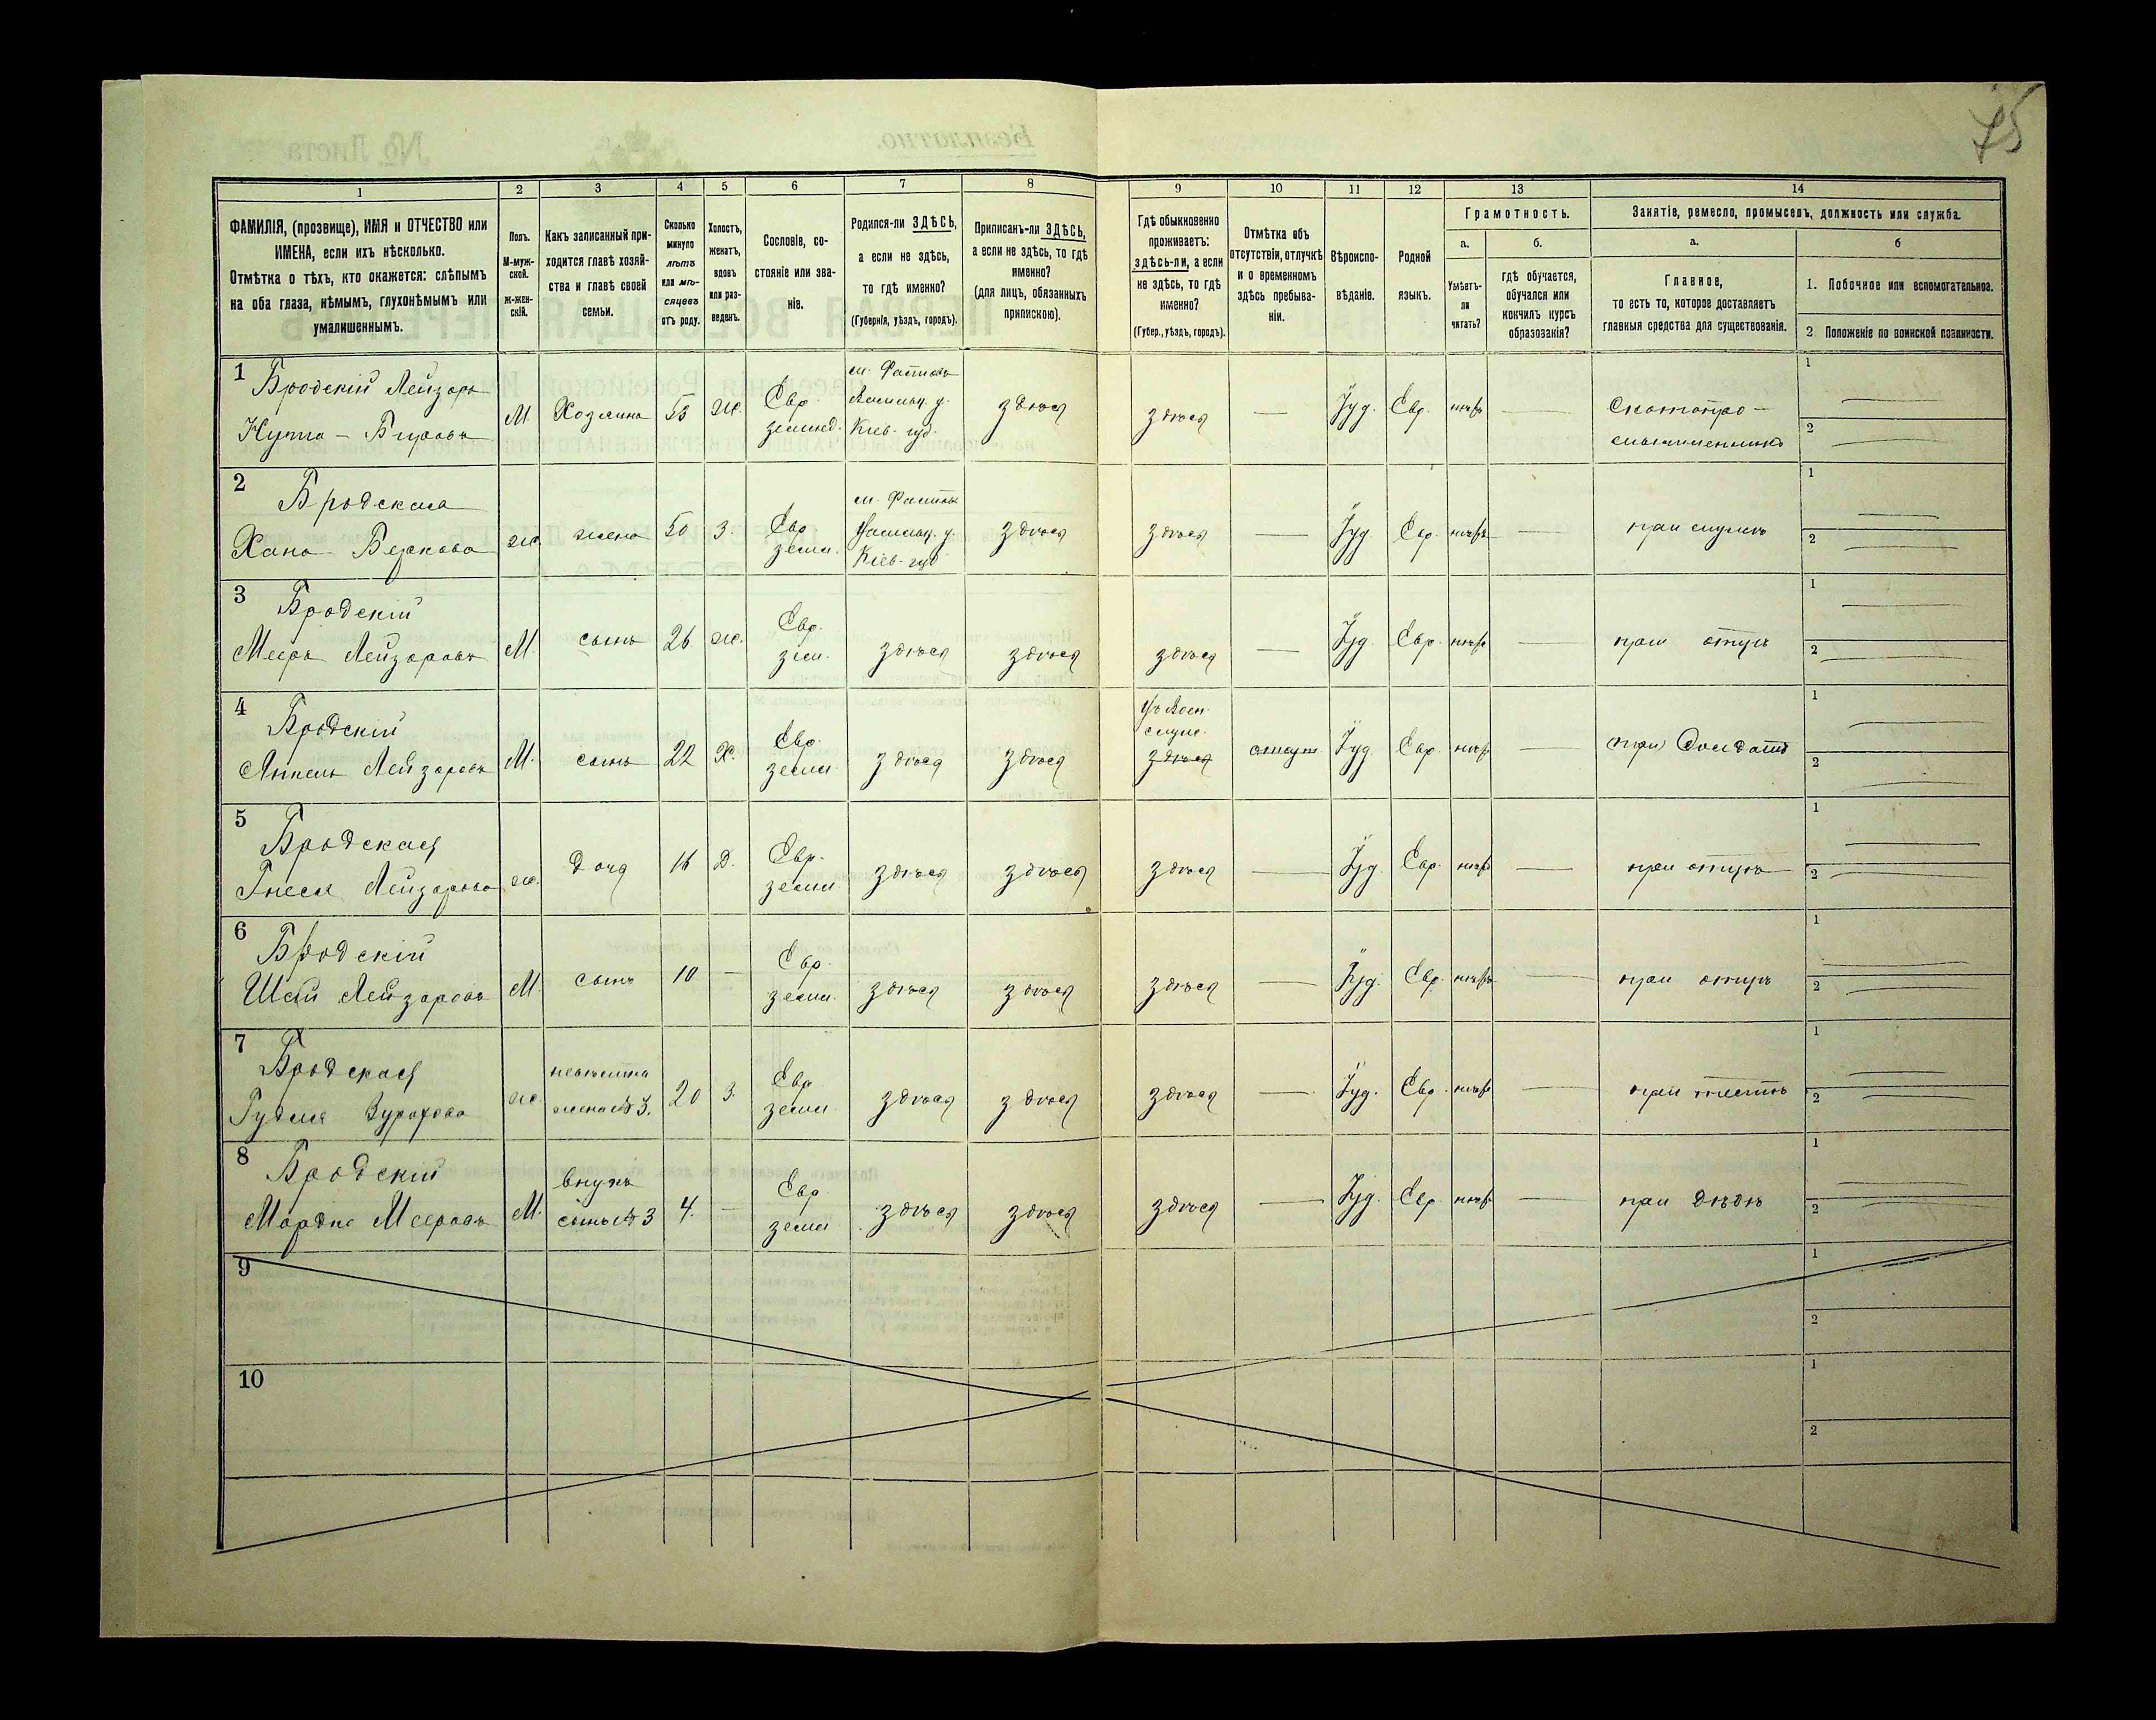 75
1 2 3 4 5 6 7 8 9 10 11 12 13 14
ФАМИЛІЯ, (прозвище), ИМЯ и ОТЧЕСТВО или
ИМЕНА, если ихъ нѣсколько.
Отмѣтка о тѣхъ, кто окажется: слѣпымъ
на оба глаза, нѣмымъ, глухонѣмымъ или
умалишеннымъ.
Полъ.
М-муж-
ской.
ж-жен-
скій.
Какъ записанный при-
ходится главѣ хозяй-
ства и главѣ своей
семьи.
Сколько
минуло
лѣтъ
или мѣ-
сяцевъ
отъ роду.
Холостъ,
женатъ,
вдовъ
или раз-
веденъ.
Сословіе, со-
стояніе или зва-
ніе.
Родился-ли ЗДѢСЬ,
а если не здѣсь,
то гдѣ именно?
(Губернія, уѣздъ, городъ).
Приписанъ-ли ЗДѢСЬ,
а если не здѣсь, то гдѣ
именно?
(для лицъ, обязанныхъ
припискою).
Гдѣ обыкновенно
проживаетъ:
здѣсь-ли, а если
не здѣсь, то гдѣ
именно?
(Губер., уѣздъ, городъ).
Отмѣтка объ
отсутствіи, отлучкѣ
и о временномъ
здѣсь пребыва-
ніи.
Вѣроиспо-
вѣданіе.
Родной
языкъ.
Грамотность.
а.
Умѣетъ-
ли
читать?
б.
гдѣ обучается,
обучался или
кончилъ курсъ
образованія?
Занятіе, ремесло, промыселъ, должность или служба.
а.
Главное,
то есть то, которое доставляетъ
главныя средства для существованія.
б
1. Побочное или вспомогательное.
2 Положеніе по воинской повинности.
1
Бродскій Лейзоръ
М. Хозяинъ 55 ж. Евр. землед.
м. Фастовъ
Васильк. у.
Кіев. губ.
здѣся здѣся — Іуд. Евр. —
Скотопро-
мышленникъ
1
2
2
Бродская
Хана Беркова ж. жена 50 з. Евр. земл.
м. Фастовъ
Васильк. у.
Кіев. губ
здѣся здѣся — Іуд Евр. — при мужѣ
1
2
3
Бродскій
Мееръ Лейзоровъ М. сынъ 26 ж. Евр. зем. здѣся здѣся здѣся — Іуд. Евр. — при отцѣ
1
2
4
Бродскій
Лейзоровъ М. сынъ 22 Х. Евр. земл. здѣся здѣся
здѣся отсут. Іуд. Евр. — Солдатъ
1
2
5
Бродская
Гнеся Лейзорова ж. дочь 16 Д. Евр. земл. здѣся здѣся здѣся — Іуд. Евр. — при отцѣ
1
2
6
Бродскій
Лейзоровъ М. сынъ 10 — Евр. земл. здѣся здѣся здѣся — Іуд. Евр. — при отцѣ
1
2
7
Бродская
ж невѣстка
жена № 3. 20 з. Евр земл. здѣся здѣся здѣся — Іуд. Евр. — при тестѣ
1
2
8
Бродскій
Мордко Мееровъ М. внукъ
сынъ № 3 4. — Евр земл здѣся здѣся здѣся — Іуд. Евр — при дѣдѣ
1
2
9
1
2
10
1
2